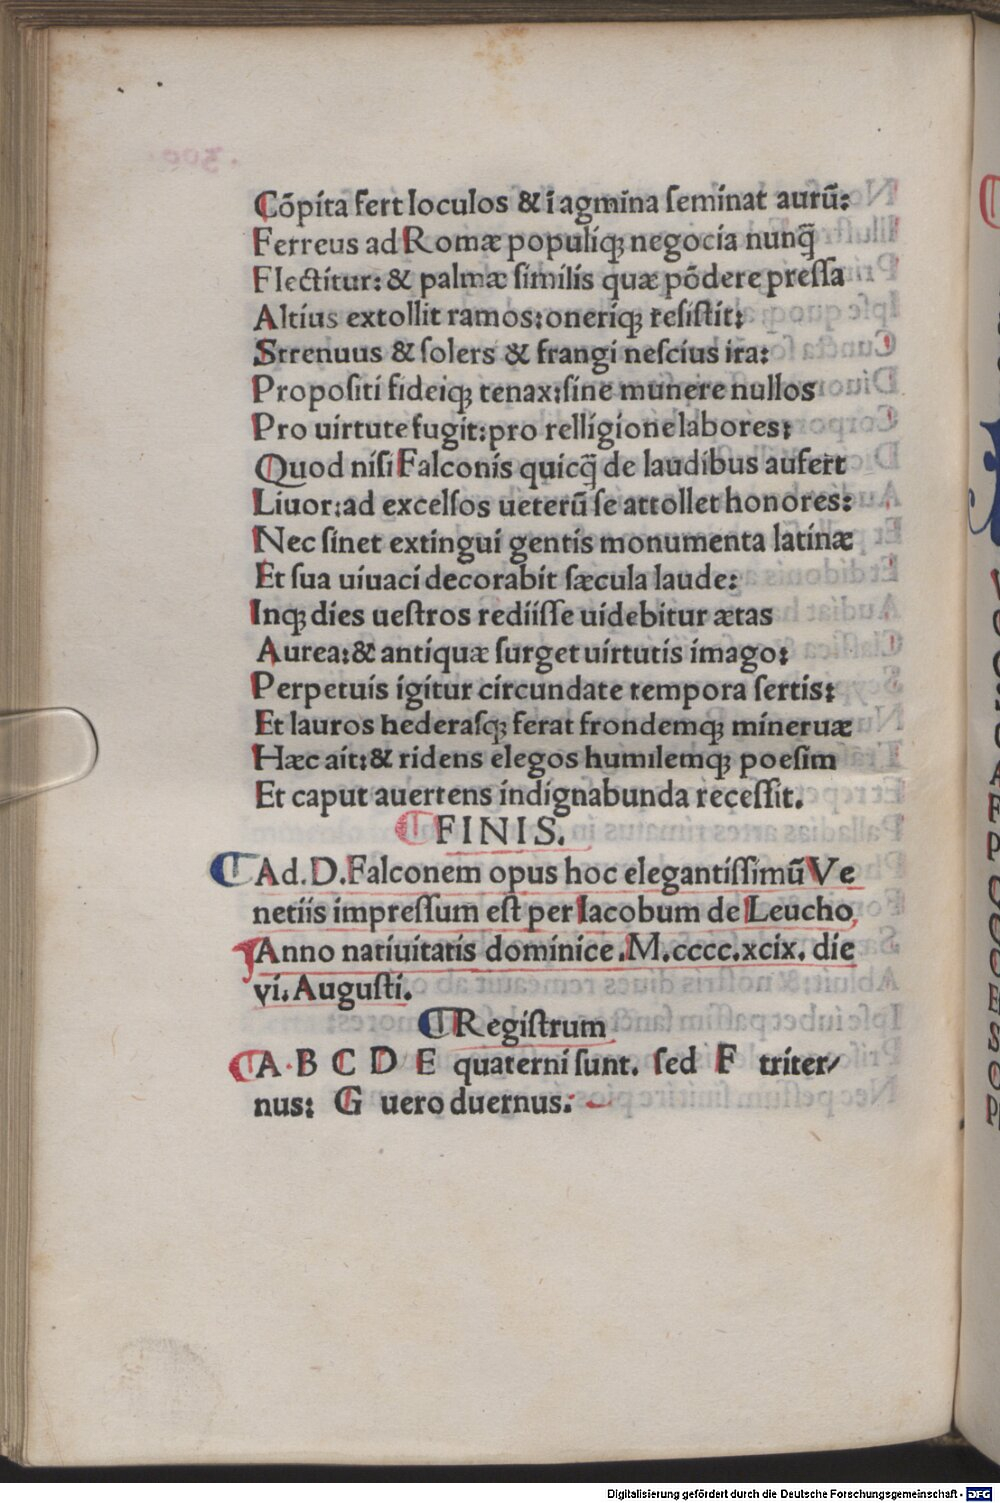 Cōpita fert loculos & ī agmina seminat aurū:
Ferreus ad Romæ populiq; negocia nunq̄
Flectitur: & palmæ similis quæ pōdere pressa
Altius extollit ramos: oneriq; resistit:
Strenuus & solers & frangi nescius ira:
Propositi fideiq; tenax: sine munere nullos
Pro uirtute fugit: pro relligione labores:
Quod nisi Falconis quicq̄ de laudibus aufert
Liuor: ad excelsos ueterū se attollet honores:
Nec sinet extingui gentis monumenta latinæ
Et sua uiuaci decorabit sæcula laude:
Inq; dies uestros rediisse uidebitur ætas
Aurea: & antiquæ surget uirtutis imago:
Perpetuis igitur circundate tempora sertis:
Et lauros hederasq; ferat frondemq; mineruæ
Hæc ait: & ridens elegos humilemq; poesim
Et caput auertens indignabunda recessit.
FINIS.
Ad. D. Falconem opus hoc elegantissimū Ve
netiis impressum est per Iacobum de Leucho,
Anno natiuitatis dominice. M.cccc.xcix. die
vi. Augusti.
Registrum
A B C D E quaterni sunt. sed F triter/
nus: G uero duernus.
Digitalisierung gefördert durch die Deutsche Forschungsgemeinschaft - DFG